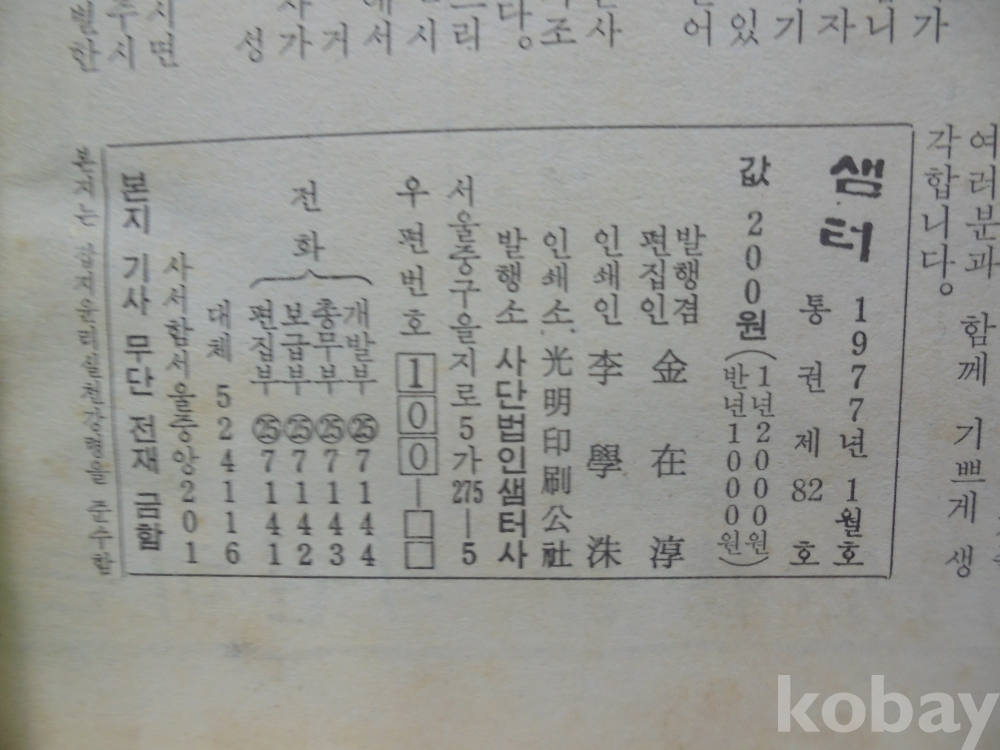 어있기자니가
성가거서시리다。조사
한시면
여러분과 함께 기쁘게 생
각합니다。
샘터
1977년 1월호
통권 제 82 호
값 200원
(1년2000원
반년1000원)
발행겸
편집인 金在淳
인쇄인 李學洙
인쇄소 光明印刷公社
발행소 사단법인샘터사
서울중구을지로5가275—5
우편번호 100—□□
전화
개발부 ㉕7144
총무부 ㉕7143
보급부 ㉕7142
편집부 ㉕7141
대체 524116
사서함서울중앙201
본지 기사 무단 전재 금함
본지는 잡지윤리실천강령을 준수한
kobay